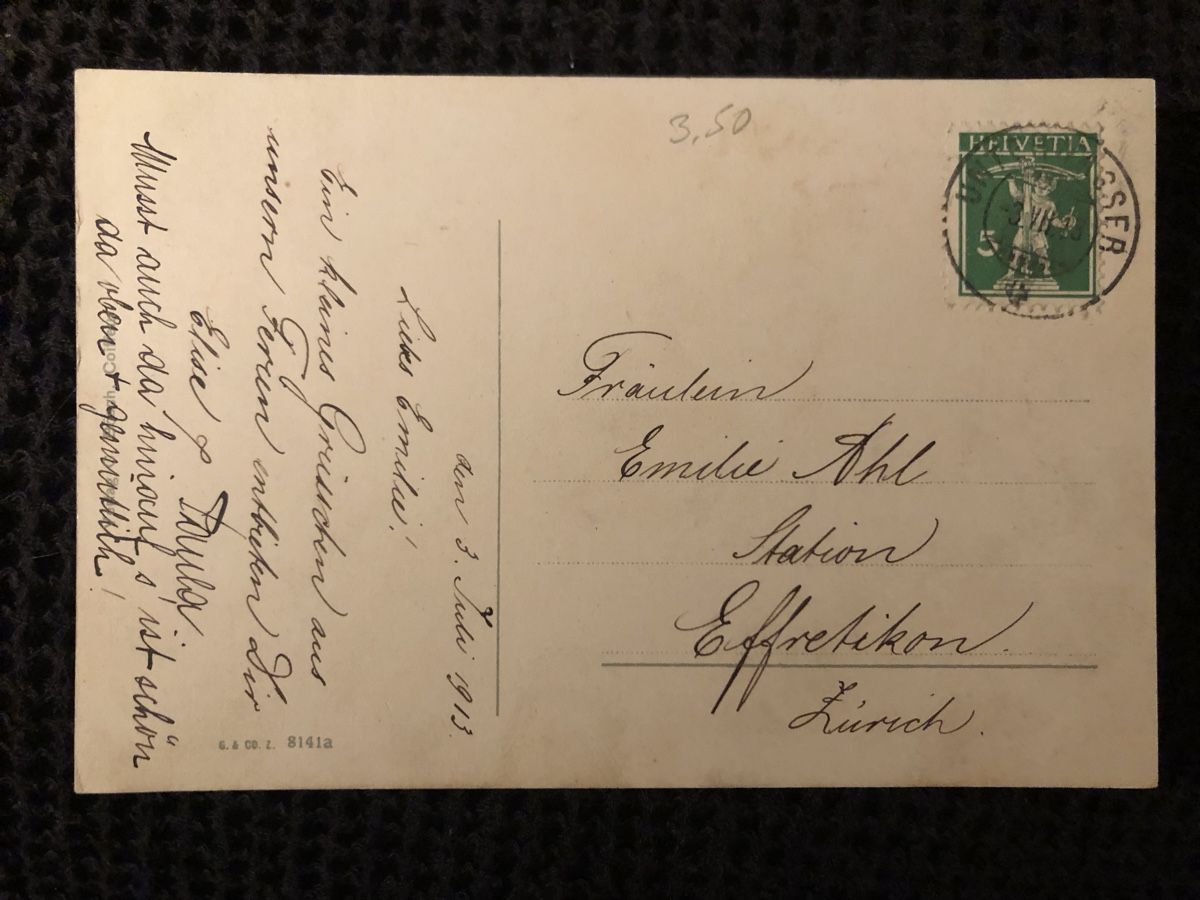 3.50
HELVETIA
5
den 3. Juli 1913.
Liebs Emilie!
Ein kleines Grüsschen aus
unsern Ferien entbieten Dir
Elise &
Musst auch da hinauf, s'ist schön
da oben + gemütlich!
Fräulein
Emilie Ahl
Station
Effretikon.
Zürich.
G. & CO. Z. 8141a